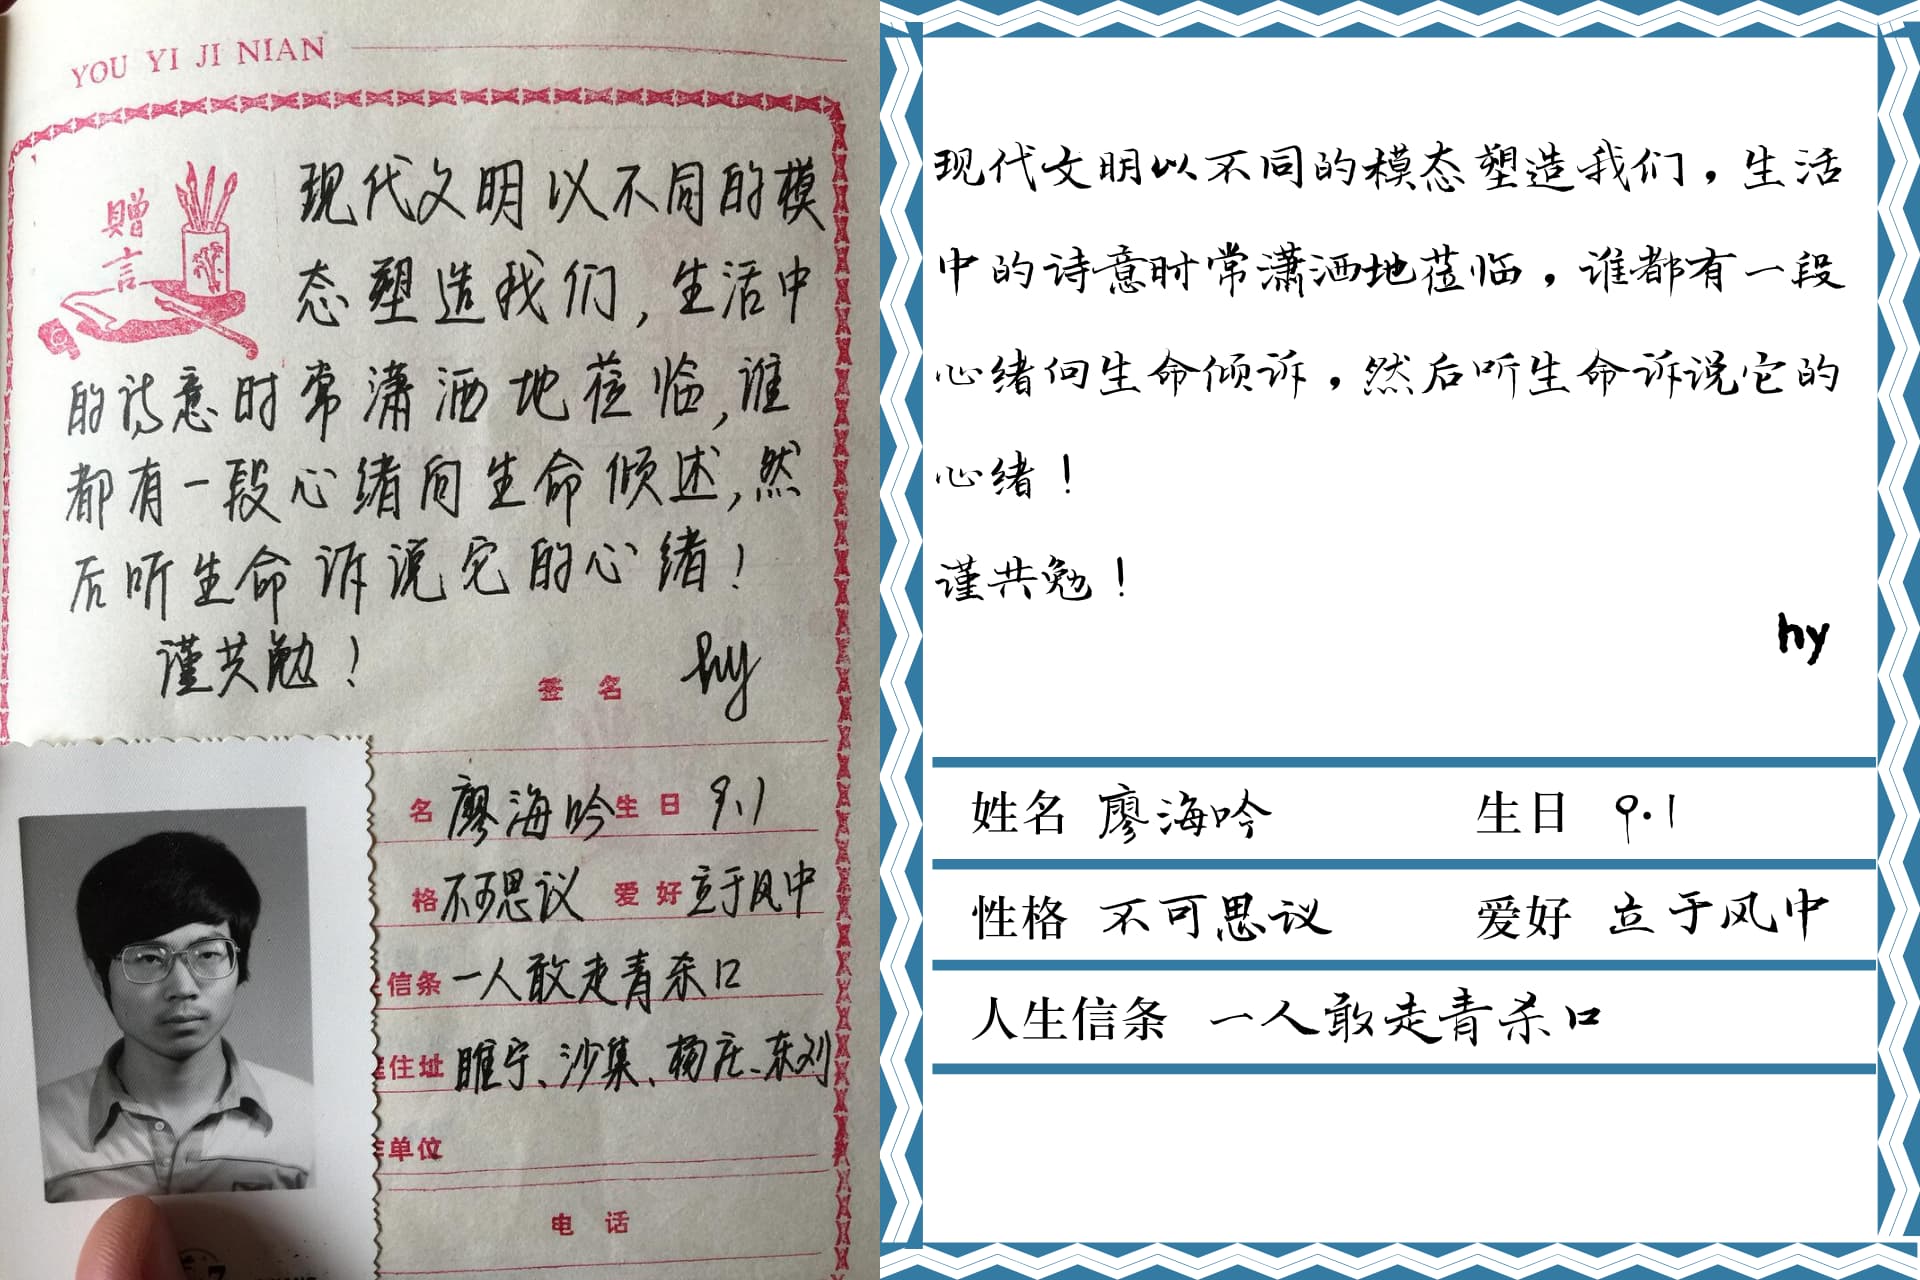 YOU YI JI NIAN
赠
言
现代文明以不同的模
态塑造我们，生活中
的诗意时常潇洒地莅临，谁
都有一段心绪向生命倾述，然
后听生命诉说它的心绪！
谨共勉！
签 名 hy
名 廖海吟 生 日 9.1
格 不可思议 爱 好 立于风中
信条 一人敢走青杀口
住址 睢宁、沙集、杨庄、东刘
单位
电 话
现代文明以不同的模态塑造我们，生活
中的诗意时常潇洒地莅临，谁都有一段
心绪向生命倾诉，然后听生命诉说它的
心绪！
谨共勉！
hy
姓名 廖海吟 生日 9.1
性格 不可思议 爱好 立于风中
人生信条 一人敢走青杀口